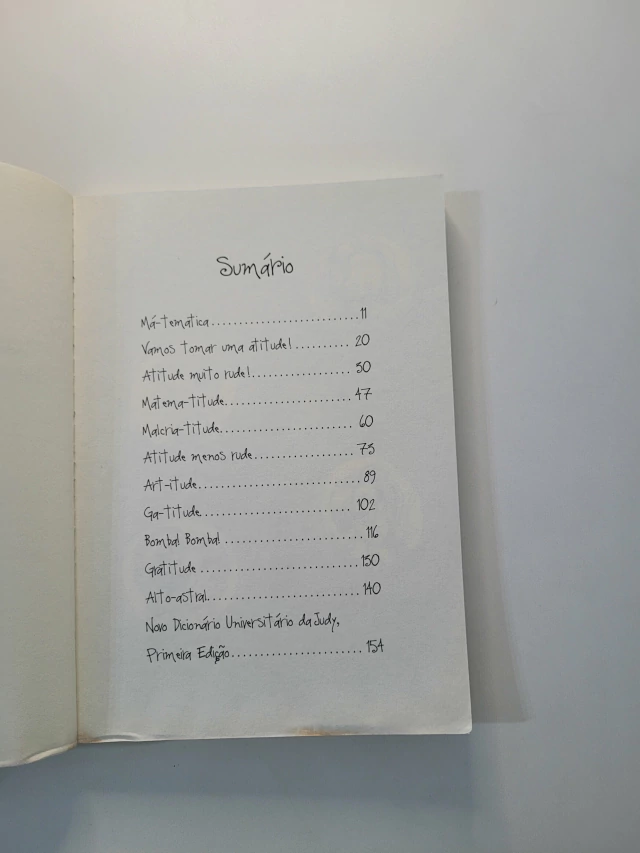 Sumário
Má-temática..........................11
Vamos tomar uma atitude!.......... 20
Atitude muito rude!.................. 30
Matema-titude....................... 47
Malcria-titude........................ 60
Atitude menos rude.................. 73
Art-itude............................. 89
Ga-titude........................... 102
Bomba! Bomba! ......................... 116
Gratitude ............................ 130
Alto-astral........................... 140
Novo Dicionário Universitário da Judy,
Primeira Edição....................... 154